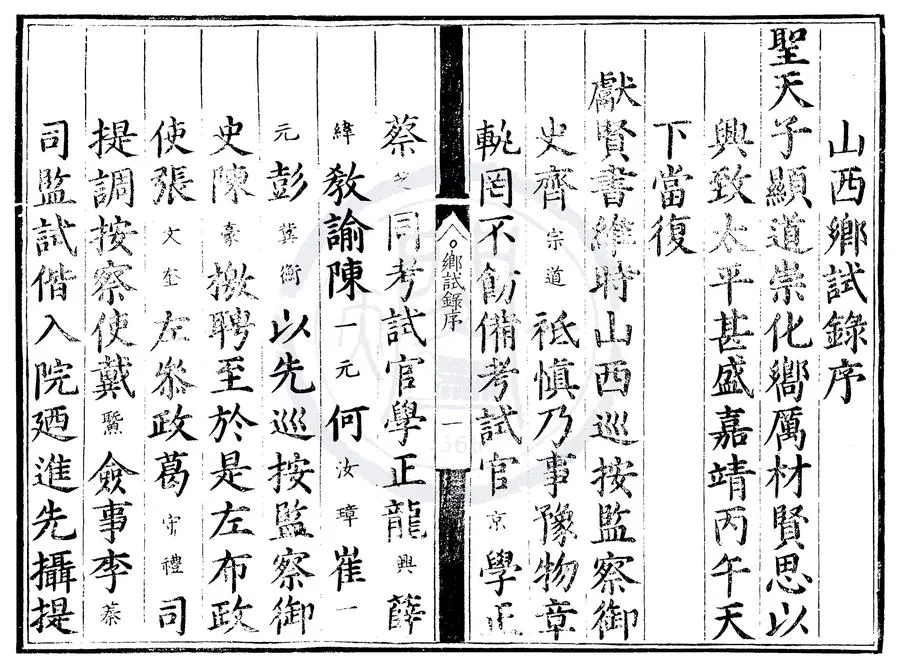 山西鄉試錄序
聖天子顯道崇化嚮厲材賢思以
興致太平甚盛嘉靖丙午天
下當復
獻賢書維時山西巡按監察御
史齊宗道祗慎乃事豫物章
軌罔不飭備考試官京學正
鄉試錄序 一
蔡同考試官學正龍興薛
緯教諭陳一元何汝璋崔一
元彭冀衡以先巡按監察御
史陳豪檄聘至於是左布政
使張文奎左叅政葛守禮司
提調按察使戴僉事李
司監試偕入院廼進先攝提